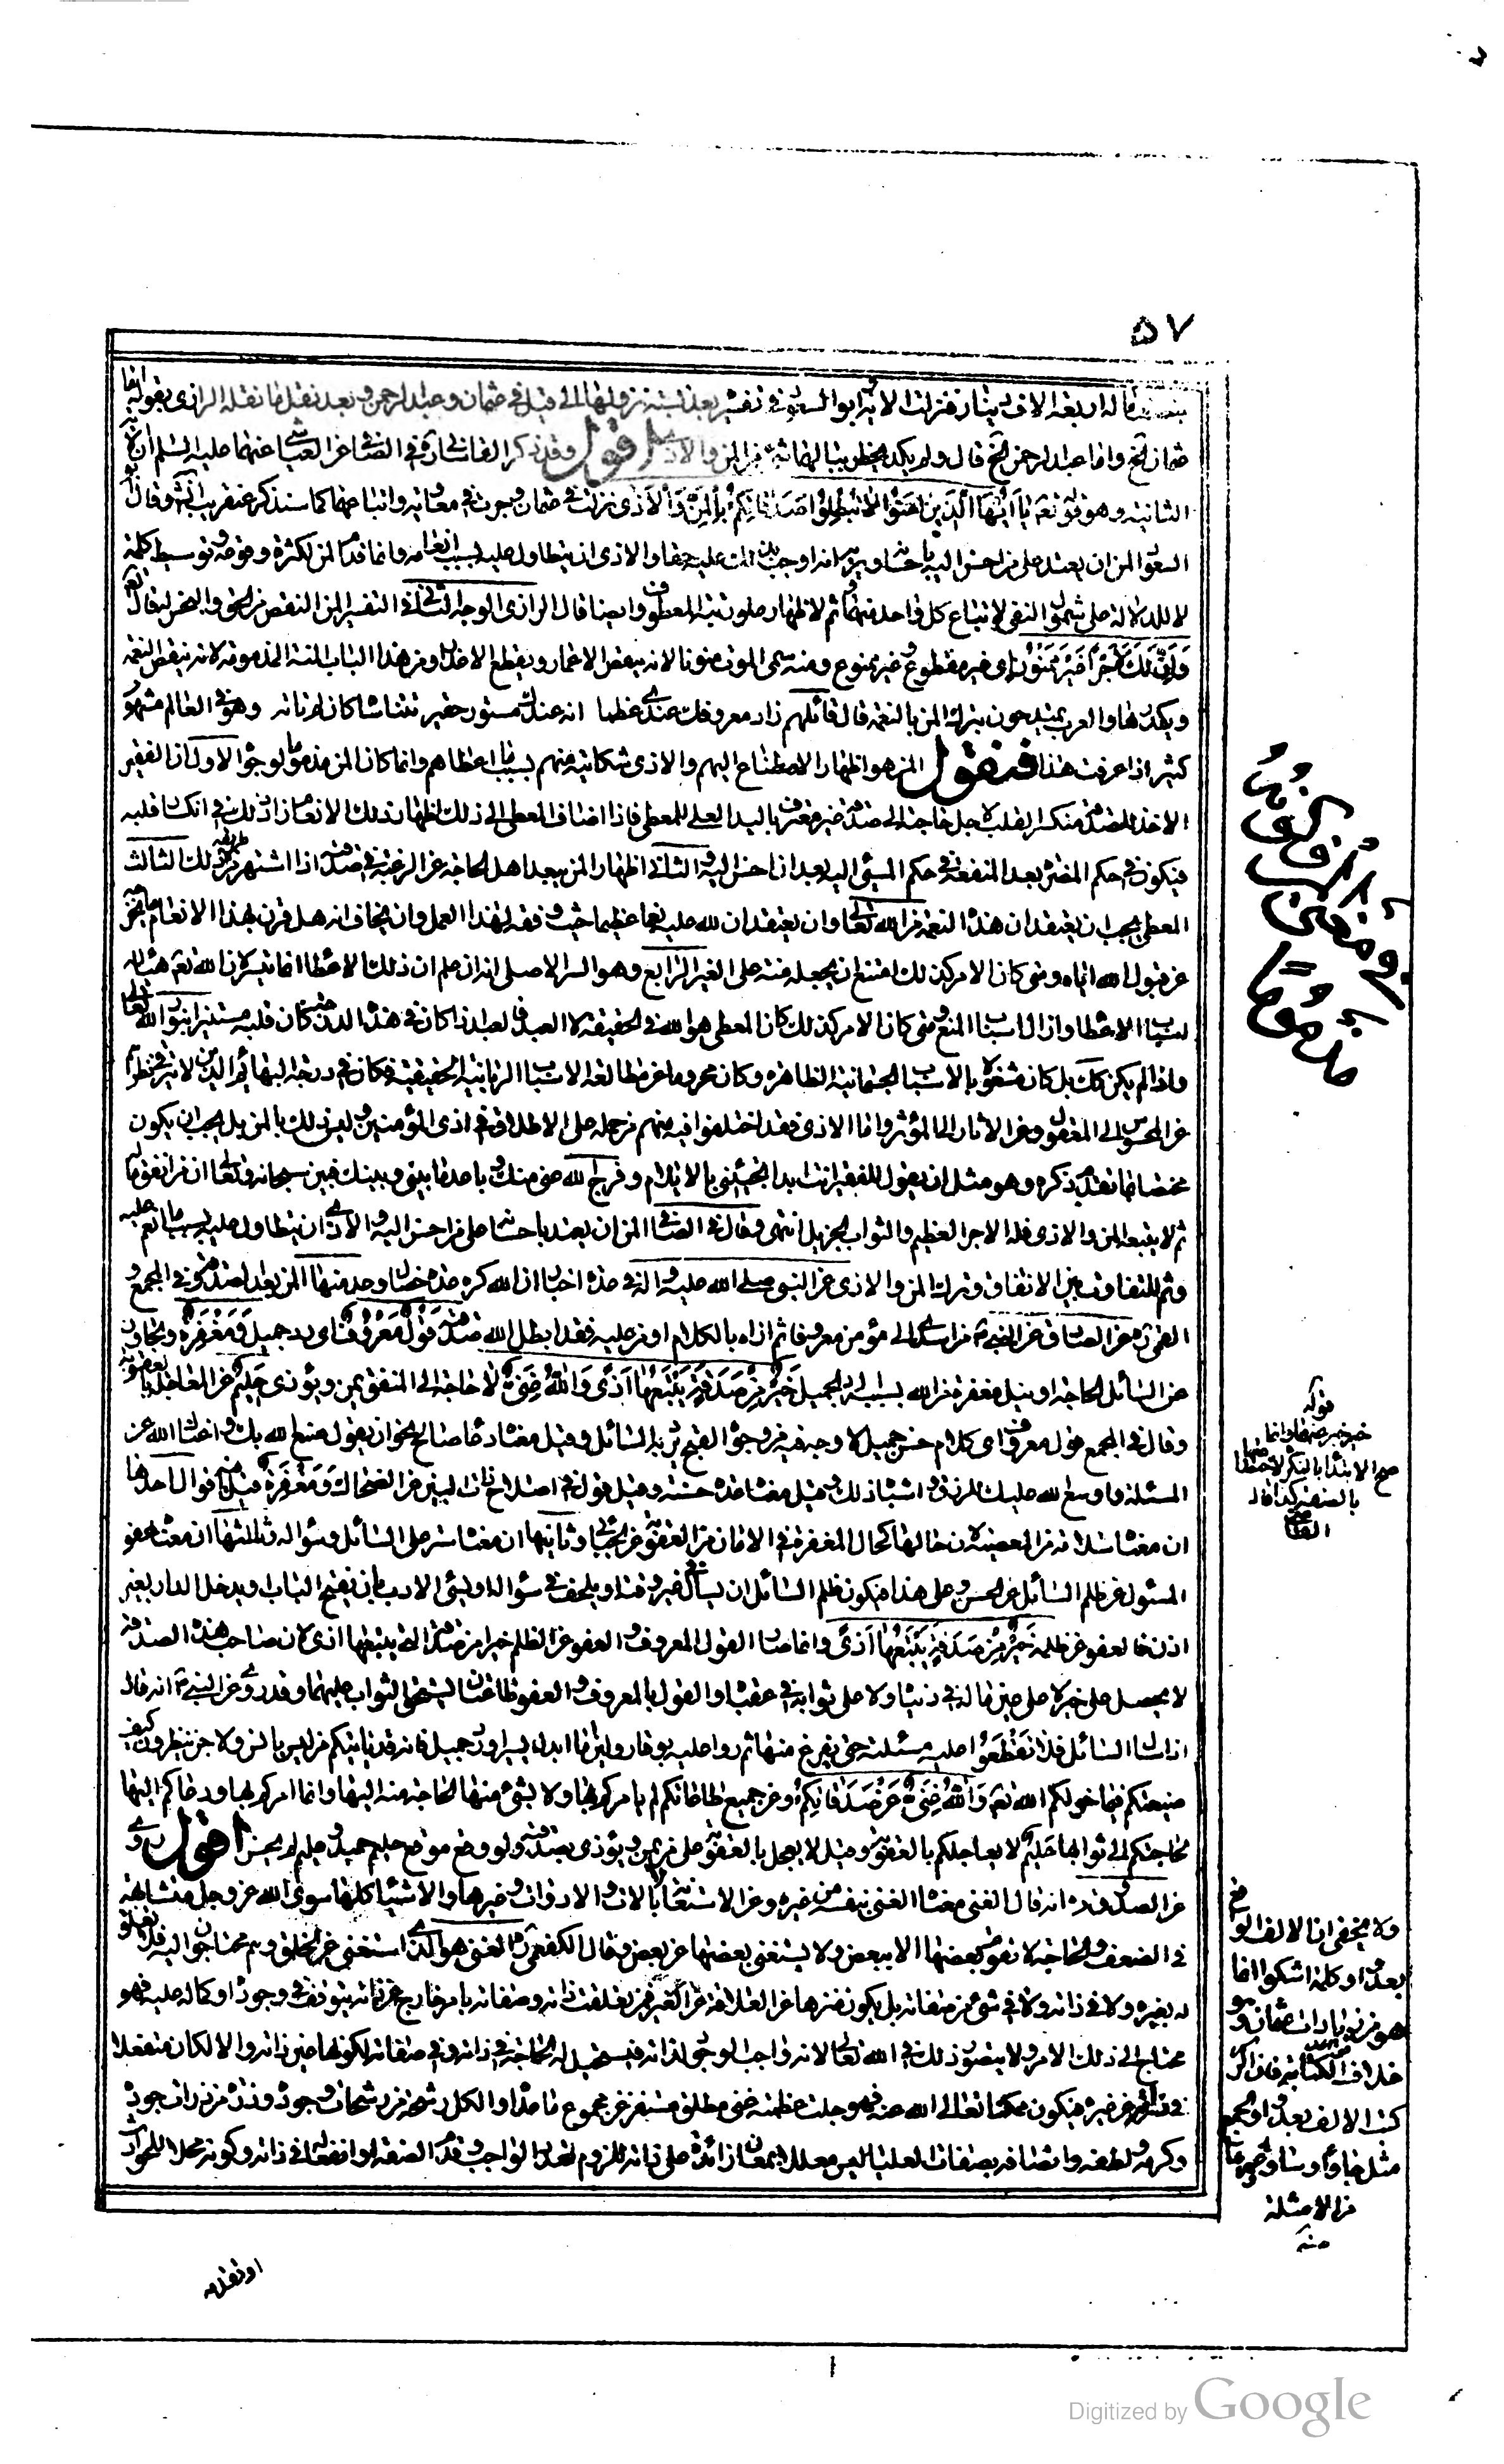 ٥٧
عثمان الخ واما عبد الرحمن الخ قال ولم يكد يخطر ببالهما شئ من المن والاذى اقول وقد ذكر القاساني ره في الصافي عن العياشي عنهما عليهما السلم ان الآية
الثانيه وهو قوله تعم يا ايها الذين امنوا لا تبطلوا صدقاتكم بالمن والاذى نزلت في عثمان وجرت في معاوية واتباعهما كما سنذكر عنقريب انشه وقال
السعود المن ان يعتد على من احسن اليه باحسانه ويريه انه اوجب بذلك عليه حقا والاذى ان يتطاول عليه بسبب انعامه وانما قدم المن لكثرة وقوعه وتوسيط كلمة
لا للدلالة على شمول النفي لاتباع كل واحد منهما وثم لاظهار علو رتبة المعطوف وايضا قال الرازي الوجه الثاني في التفسير المن النقص من الحق والبخس له قال تعم
وان لك لاجرا غير ممنون اى غير مقطوع وغير ممنوع ومنه سمى الموت منونا لانه ينقص الاعمار ويقطع الاعذار ومن هذا الباب المنة المذمومه لانه ينقص النعمة
ويكدرها والعرب يمتدحون بترك المن بالنعمة قال قائلهم زاد معروفك عندي عظما انه عندك مستور حقير تتناساه كان لم تاته وهو في العالم مشهور
كثير اذا عرفت هذا فنقول المن هو اظهار الاصطناع اليهم والاذى شكايته منهم بسبب ما اعطاهم وانما كان المن مذموما لوجوه الاول ان الفقير
الاخذ للصدقة منكسر القلب لاجل حاجته الى صدقة غيره معترف باليد العليا للمعطي فاذا اضاف المعطى الى ذلك اظهار ذلك الانعام زاد ذلك في انكسار قلبه
فيكون في حكم المضرة بعد المنفعة وفي حكم المسئ اليه بعد ان احسن اليه والثاني اظهار المن يبعد اهل الحاجة عن الرغبة في صدقته اذا اشتهر من طريقه ذلك الثالث
المعطي يجب ان يعتقد ان هذه النعمة من الله تعالى وان يعتقد ان لله عليه نعما عظيمة حيث وفقه لهذا العمل وان يخاف انه هل قرن بهذا الانعام ما يخرجه
عن قبول الله اياه ومتى كان الامر كذلك امتنع ان يجعله منة على الغير الرابع وهو السر الاصلي انه ان علم ان ذلك الاعطاء انما تيسر لان الله تعم هيأ له
اسباب الاعطاء وازال اسباب المنع ومتى كان الامر كذلك كان المعطى هو الله في الحقيقة لا العبد فالعبد اذا كان في هذه الدرجة كان قلبه مستنيرا بنور الله تعالى
واذا لم يكن كك بل كان مشغولا بالاسباب الجسمانية الظاهره وكان محروما عن مطالعة الاسباب الربانية الحقيقية فكان في درجة البهائم الذين لا يترقى نظرهم
عن المحسوس الى المعقول وعن الاثار الى المؤثر واما الاذى فقد اختلفوا فيه منهم من حمله على الاطلاق في اذى المؤمنين وليس ذلك بالمن بل يجب ان يكون
مختصا بما تقدم ذكره وهو مثل ان يقول للفقير انت ابدا تجيئني بالايلام وفرج الله عني منك وباعد ما بيني وبينك فبين سبحانه وتعالى ان من انفق ماله
ثم لا يتبعه المن والاذى فله الاجر العظيم والثواب الجزيل انتهى وقال في الصافي المن ان يعتد باحسانه على من احسن اليه والاذى ان يتطاول عليه بسبب ما انعم عليه
وثم للتفاوت بين الانفاق وترك المن والاذى عن النبي صلى الله عليه واله في عده اخبار ان الله كره عده خصال وعد منها المن بعد الصدقة وفي المجمع و
القمي ره عن الصادق عن النبي ص من اسدى الى مؤمن معروفا ثم اذاه بالكلام او من عليه فقد ابطل الله صدقته قول معروف اى رد جميل ومغفرة وتجاوز
عن السائل الحاحه او نيل مغفرة من الله بسبب الرد الجميل خير من صدقة يتبعها اذى والله غنى لا حاجة له الى المنفق يمن ويؤذى حليم عن المعاجلة بالعقوبة
وقال في المجمع قول معروف اى كلام حسن جميل لا وجه فيه من وجوه القبح يرد به السائل وقيل معناه دعاء صالح نحو ان يقول صنع الله بك واغناك الله عن
المسئلة واوسع الله عليك الرزق واشباه ذلك وقيل معناه عدة حسنة وقيل قول في اصلاح ذات البين عن الضحاك ومغفرة قيل فيه اقوال احدها
ان معناه سلامة من المعصية لان حالها كحال المغفرة في الامان من العقوبة عن الجبائي وثانيها ان معناه ستر على السائل وسؤاله وثالثها ان معناه عفو
المسئول عن ظلم السائل عن الحسن وعلى هذا فيكون ظلم السائل ان يسأل في غير وقته او يلحف في سؤاله او يسئ الادب بان يفتح الباب ويدخل الدار بغير
اذن فالعفو عن ظلمه خير من صدقة يتبعها اذى وانما صار القول المعروف والعفو عن الظلم خيرا من الصدقة التي يتبعها اذى لان صاحب هذه الصدقة
لا يحصل على خير لا على عين ماله في دنياه ولا على ثوابه في عقباه والقول بالمعروف والعفو طاعتان يستحق الثواب عليهما وقد روي عن النبي ص انه قال
اذا سال السائل فلا تقطعوا عليه مسئلته حتى يفرغ منها ثم ردوا عليه بوقار ولين اما ابذل يسير او رد جميل فانه قد ياتيكم من ليس بانس ولا جن ينظرون كيف
صنيعتكم فيما خولكم الله تعم والله غنى عن صدقاتكم وعن جميع طاعاتكم لم يامركم بها ولا بشئ منها لحاجة منه اليها وانما امركم بها ودعاكم اليها
لحاجتكم الى ثوابها حليم لا يعاجلكم بالعقوبة وقيل لا يعجل بالعقوبة على من يمن ويؤذى بصدقته ولو وقع موقع حليم حميد وعليم لم يحسن اقول روي
عن الصدوق ره انه قال الغني معناه الغني بنفسه عن غيره وعن الاستعانة بالالات والادوات وغيرها والاشياء كلها سوى الله عز وجل متشابهة
في الضعف والحاجة لا تقوم بعضها الا ببعض ولا يستغني بعضها عن بعض وقال الكفعمي ره الغني هو الذي استغنى عن الخلق وهم محتاجون اليه فلا تعلق
له بغيره لا في ذاته ولا في شئ من صفاته بل يكون منزها عن العلاقة عن الغير فمن تعلقت ذاته وصفاته بامر خارج عن ذاته يتوقف في وجوده او كماله عليه فهو
محتاج الى ذلك الامر ولا يتصور ذلك في الله تعالى لانه واجب الوجود لذاته فيستحيل له الحاجة في ذاته وفي صفاته لكونها عين ذاته والا لكان منفعلا
وكرمه ولطفه واتصافه بصفات العليا ليس معللا بمعان زائدة على ذاته للزوم تعدد الواجب وقدم الصفة او انفعاله في ذاته وكونه محلا للحوادث
او تقدمه
في كون المن مذموما
قوله
خير خبر عنهما وانما
صح الابتداء بالنكرة لاختصاصها
بالصفة كذا قال
ولا يخفى ان الالف الواقع
بعد واو كلمة اشكوا انما
هو من زيادات عثمان وهو
كتب الالف بعد واو الجمع
من الامثلة
منه
Digitized by Google